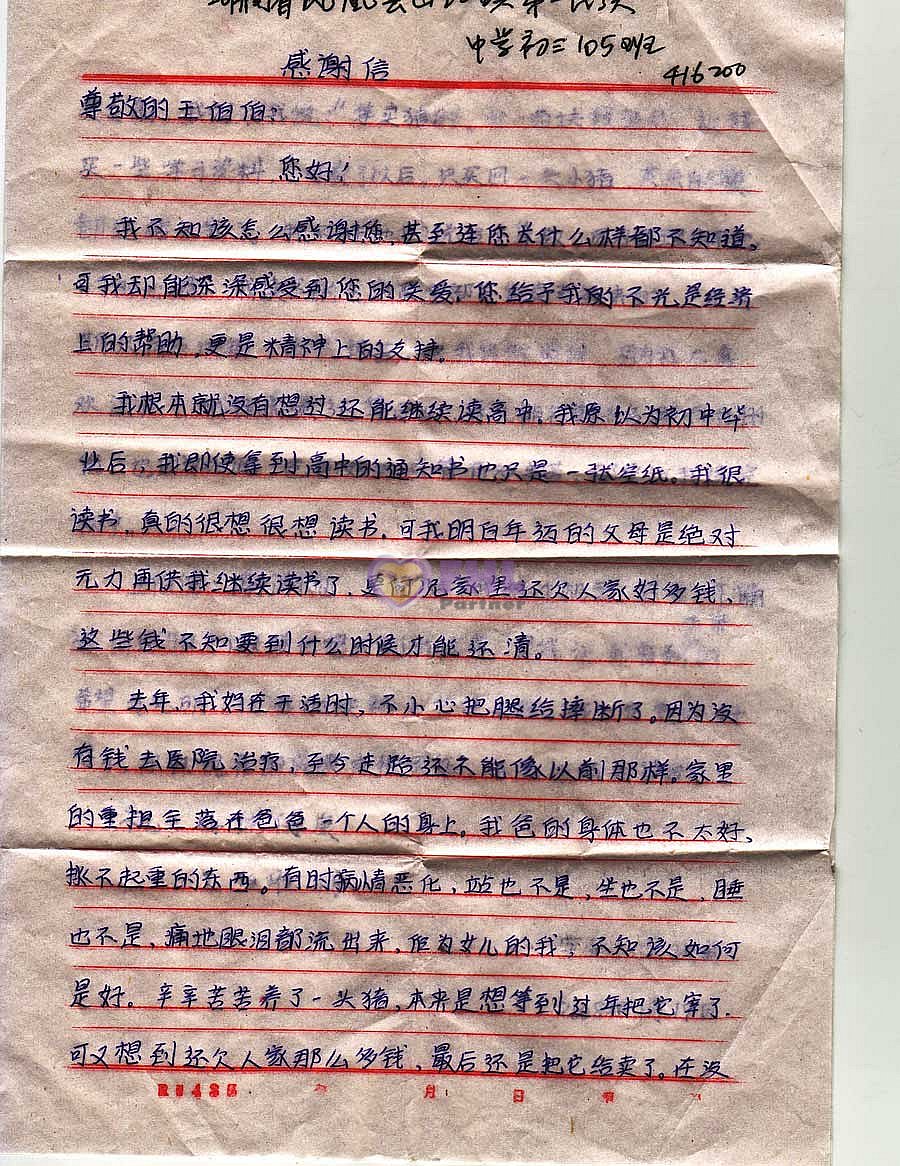 中学初三105班
416200
感谢信
尊敬的王伯伯：
您好！
我不知该怎么感谢您，甚至连您长什么样都不知道。
可我却能深深感受到您的关爱，您给予我的不光是经济
上的帮助，更是精神上的支持。
我根本就没有想过还能继续读高中，我原以为初中毕
业后，我即使拿到高中的通知书也只是一张空纸。我很
读书，真的很想很想读书，可我明白年迈的父母是绝对
无力再供我继续读书了，更何况家里还欠人家好多钱、
这些钱不知要到什么时候才能还清。
去年、我妈在干活时，不小心把腿给摔断了。因为没
有钱去医院治疗，至今走路还不能像以前那样。家里
的重担全落在爸爸一个人的身上。我爸的身体也不太好、
挑不起重的东西。有时病情恶化，站也不是，坐也不是，睡
也不是、痛地眼泪都流出来，但为女儿的我，不知该如何
是好。辛辛苦苦养了一头猪，本来是想等到过年把它宰了.
可又想到还欠人家那么多钱，最后还是把它给卖了。在没
Partner
年 月 日 第